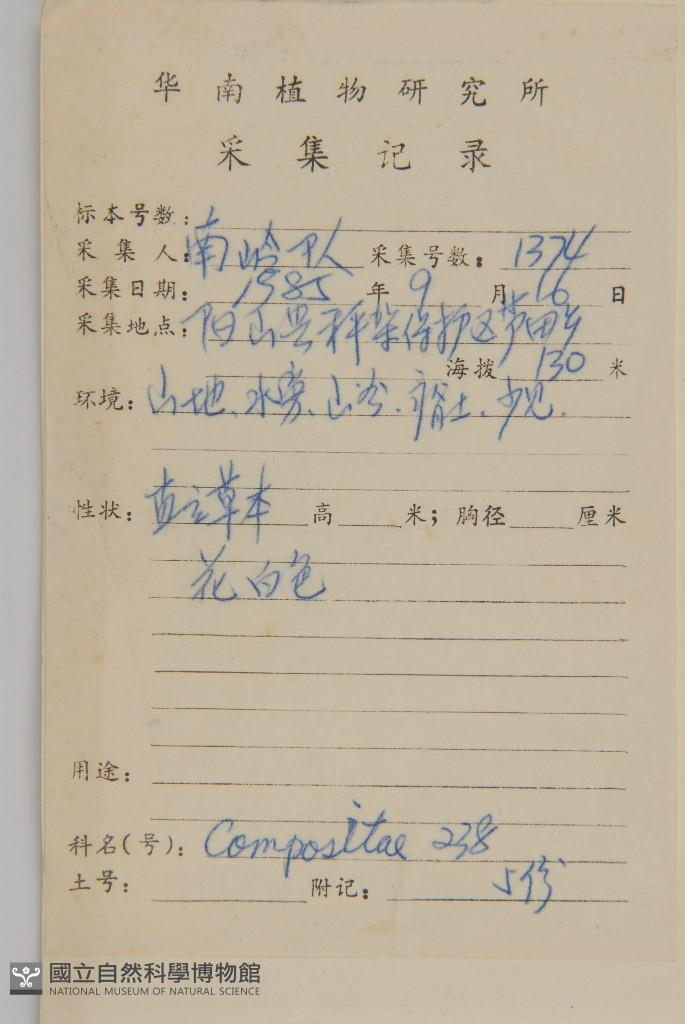 华南植物研究所
采集记录
标本号数:
采集人:南岭 采集号数:1374
采集日期:1985年9月16日
采集地点:阳山县秤架保护区芦田乡
海拨130米
环境:山地、水旁、山谷、瘠土、少见.
性状:直立草本 高 米;胸径 厘米
花白色
用途:
科名(号):Compositae 238
土号: 附记: 5份
國立自然科學博物館
NATIONAL MUSEUM OF NATURAL SCIENCE